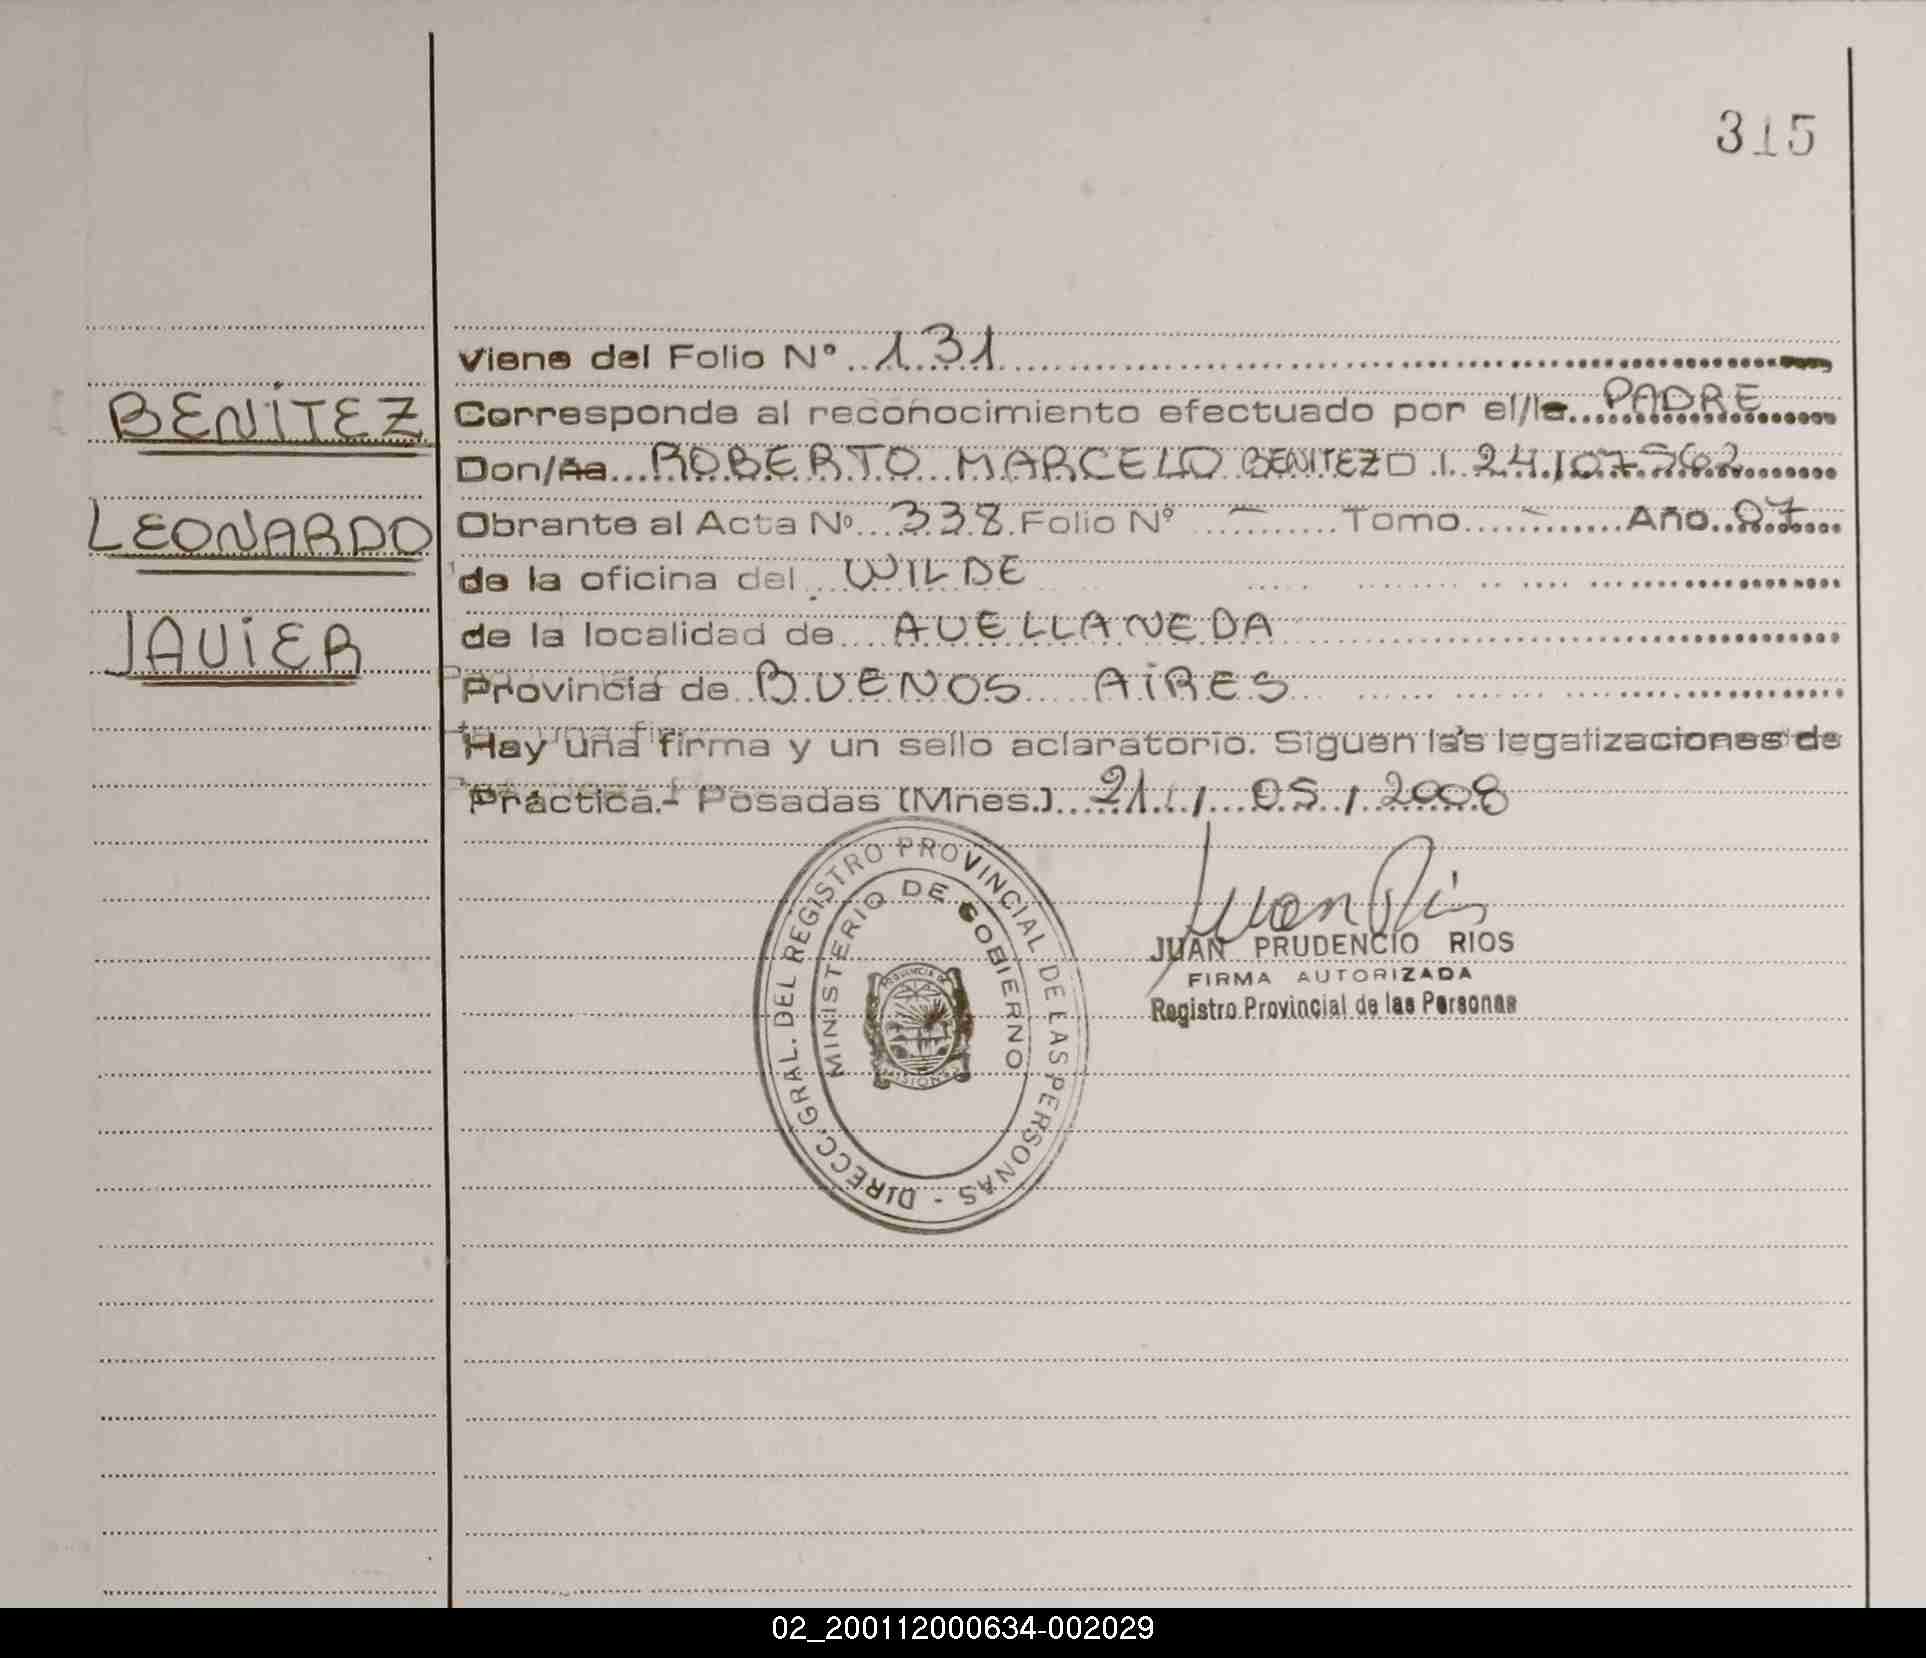 315
Viene del Folio Nº 131
BENITEZ
Corresponde al reconocimiento efectuado por el/la PADRE
Don/ña ROBERTO MARCELO BENITEZ D.I. 24.107.562
LEONARDO
Obrante al Acta Nº 338 Folio Nº - Tomo - Año 07
de la oficina del WILDE
JAVIER
de la localidad de AVELLANEDA
Provincia de BUENOS AIRES
Hay una firma y un sello aclaratorio. Siguen las legalizaciones de
Práctica.- Posadas (Mnes.) 21 / 05 / 2008
DIRECC. GRAL. DEL REGISTRO PROVINCIAL DE LAS PERSONAS -
MINISTERIO DE GOBIERNO
PROVINCIA DE
MISIONES
Juan Rios
JUAN PRUDENCIO RIOS
FIRMA AUTORIZADA
Registro Provincial de las Personas
02_200112000634-002029